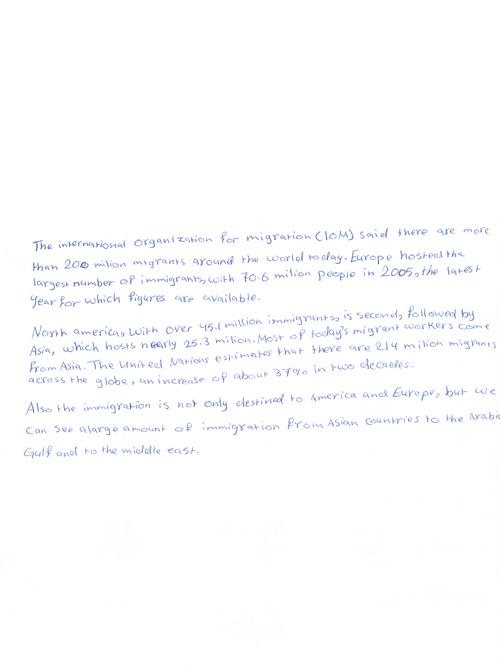 The international organization for migration (IOM) said there are more
than 200 milion migrants around the world today. Europe hosted the
largest number of immigrants, with 70.6 milion people in 2005, the latest
year for which figures are available.
North america, with over 45.1 million immigrants, is second, followed by
Asia, which hosts nearly 25.3 milion. Most of today's migrant workers come
from Asia. The United Nations estimates that there are 214 milion migrants
across the globe, an increase of about 37% in two decades.
Also the immigration is not only destined to America and Europe, but we
can see a large amount of immigration from Asian countries to the Arabic
Gulf and to the middle east.